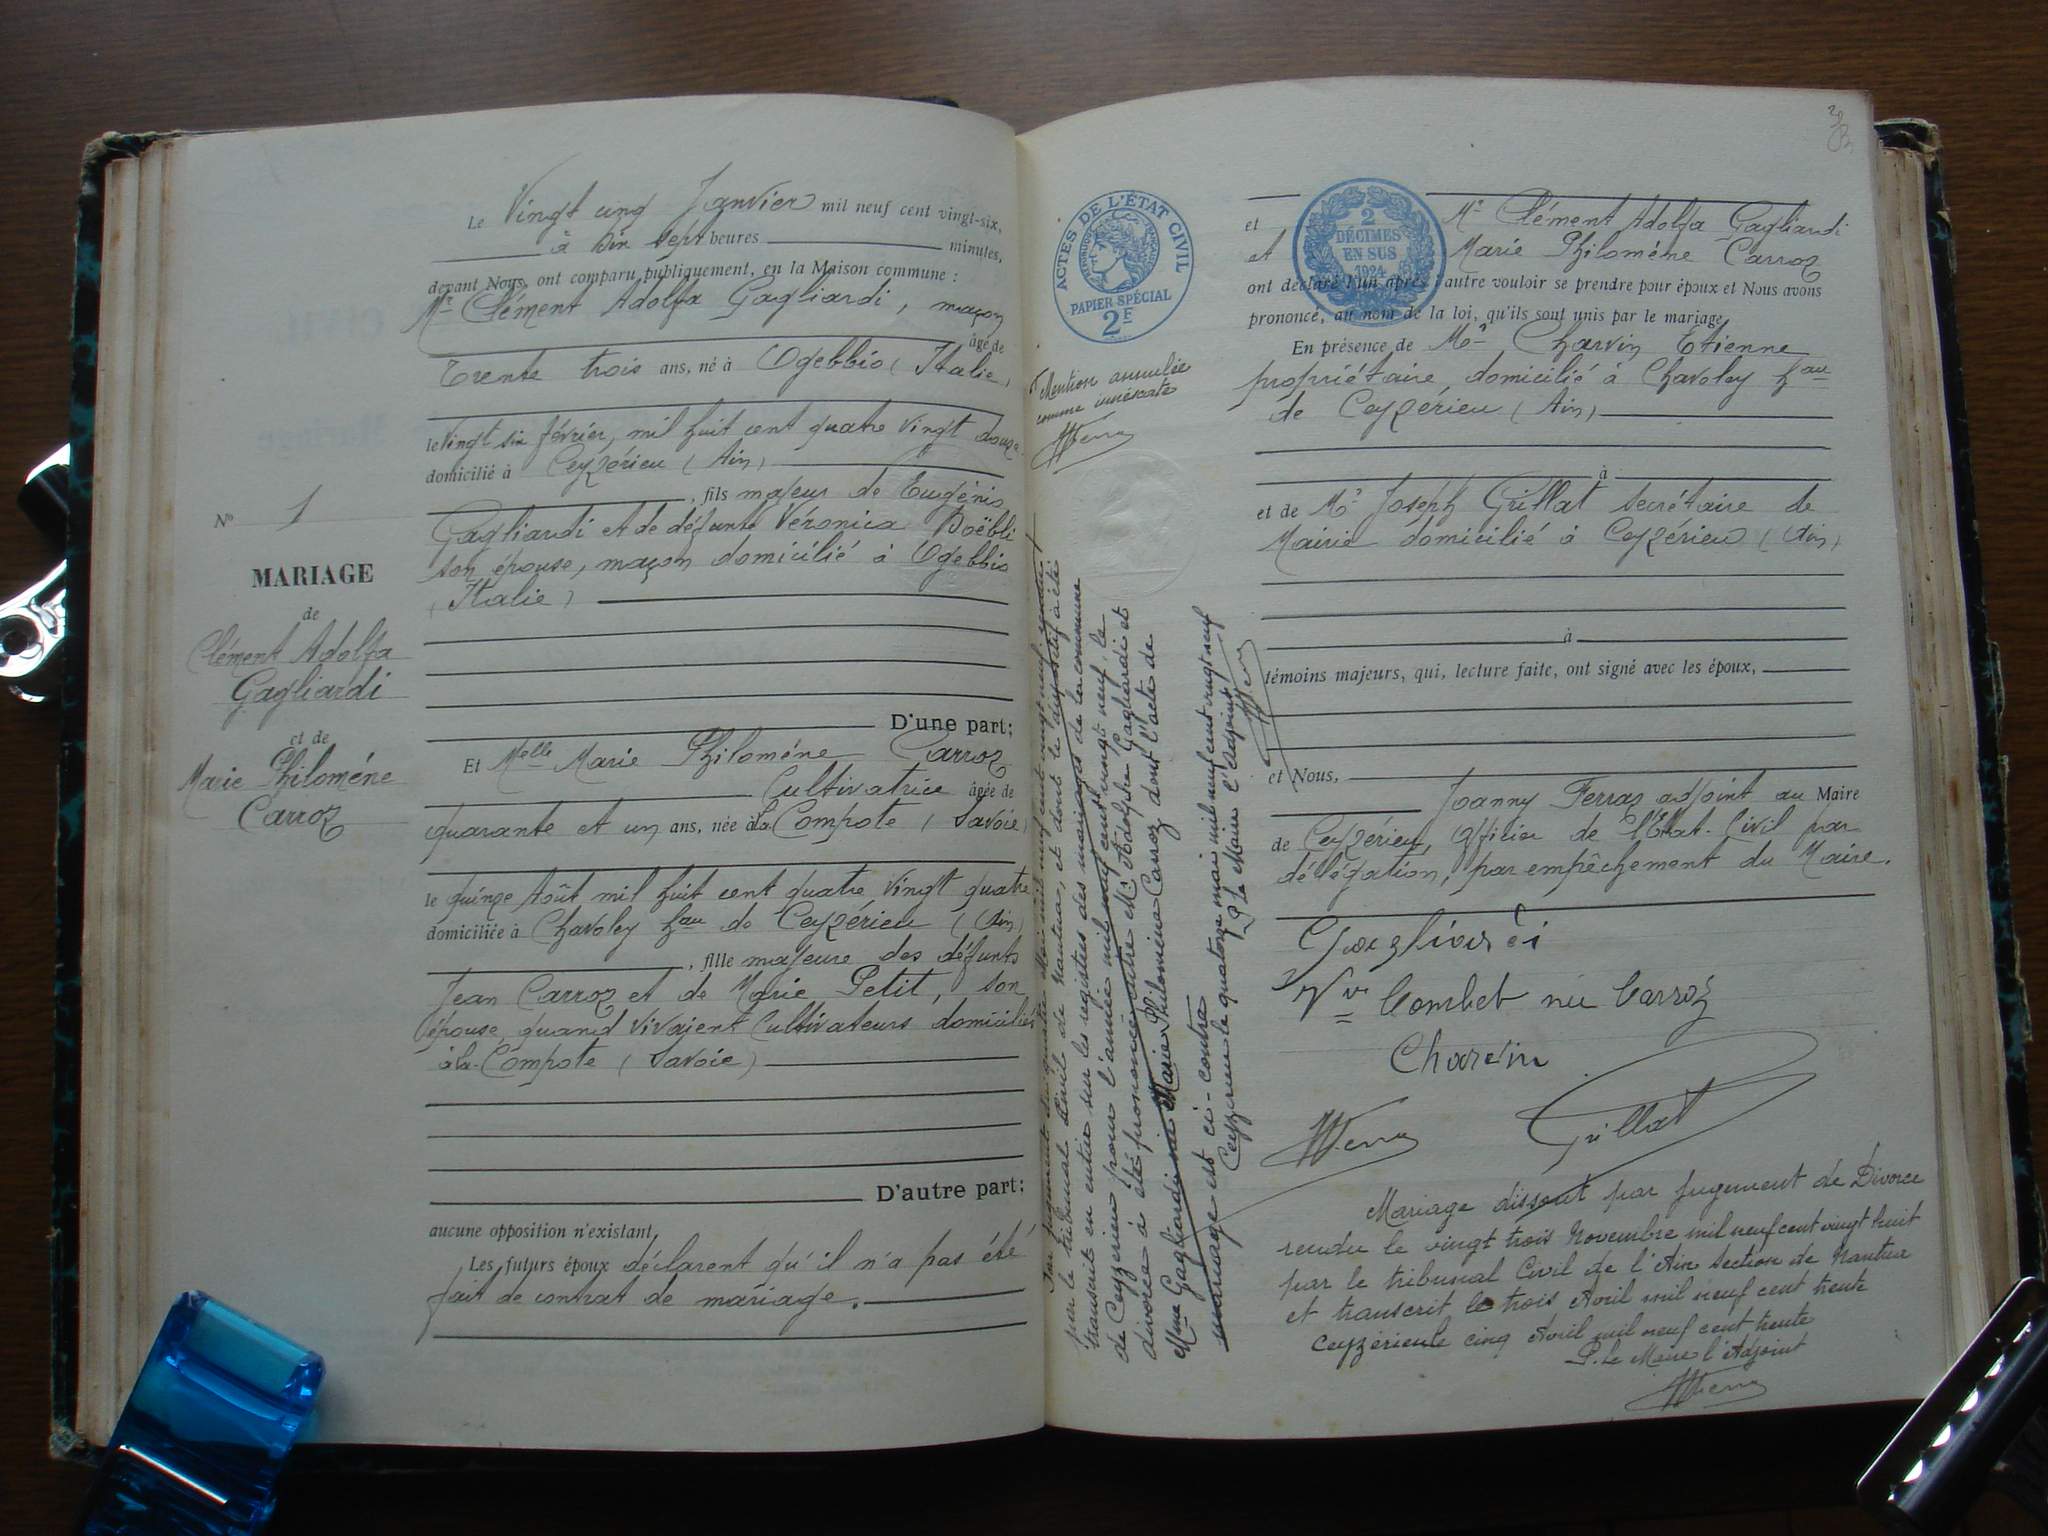 Le Vingt cinq Janvier mil neuf cent vingt-six,
à Dix sept heures minutes,
devant Nous, ont comparu publiquement, en la Maison commune :
Mr Clément Adolfa Gagliardi, maçon
âgé de
Trente trois ans, né à Oggebbio (Italie)
le Vingt six février, mil huit cent quatre vingt douze
domicilié à Ceyzérieu (Ain)
, fils majeur de Eugénio
Gagliardi et de défunte Véronica
son épouse, maçon domicilié à Oggebbio
(Italie)
No 1
MARIAGE
de
Clément Adolfa
Gagliardi
et de
Marie Philoméne
Carroz
D'une part;
Et Melle Marie Philoméne Carroz
Cultivatrice âgée de
quarante et un ans, née à la Compote (Savoie)
le quinze Août mil huit cent quatre vingt quatre
domiciliée à Chavoley hau de Ceyzérieu (Ain)
, fille majeure des défunts
Jean Carroz et de Marie Petit, son
épouse, quand vivaient Cultivateurs domiciliés
à la Compote (Savoie)
D'autre part;
aucune opposition n'existant,
Les futurs époux déclarent qu'il n'a pas été
fait de contrat de mariage.
ACTES DE L'ÉTAT CIVIL
PAPIER SPÉCIAL
2F
2
DÉCIMES
EN SUS
1924
et Mr Clément Adolfa Gagliardi
et Marie Philoméne Carroz
ont déclaré l'un après l'autre vouloir se prendre pour époux et Nous avons
prononcé, au nom de la loi, qu'ils sont unis par le mariage,
En présence de Mr Charvin Etienne
propriétaire, domicilié à Chavoley hau
de Ceyzérieu (Ain)
à
et de Mr Joseph Grillat secrétaire de
Mairie domicilié à Ceyzérieu (Ain)
à
témoins majeurs, qui, lecture faite, ont signé avec les époux,
et Nous,
Joanny Ferraz adjoint au Maire
de Ceyzérieu, officier de l'Etat-Civil par
délégation, par empêchement du Maire.
Gagliardi
Vve Combet née Carroz
Charvin
Grillat
Mention annulée
comme inexacte
Par jugement du quatre Mai mil neuf cent vingt neuf rendu
par le tribunal Civil de Nantua, et dont le dispositif a été
transcrit en entier sur les registres des mariages de la commune
de Ceyzérieu pour l'année mil neuf cent vingt neuf le
divorce a été prononcé entre M. Adolphe Gagliardi et
Mme Gagliardi née Marie Philomène Carroz dont l'acte de
mariage est ci-contre
Ceyzérieu le quatorze mai mil neuf cent vingt neuf
P. le Maire l'Adjoint
Mariage dissout par jugement de Divorce
rendu le vingt trois Novembre mil neuf cent vingt huit
par le tribunal Civil de l'Ain section de Nantua
et transcrit le trois Avril mil neuf cent trente
Ceyzérieu le cinq Avril mil neuf cent trente
P. le Maire l'Adjoint